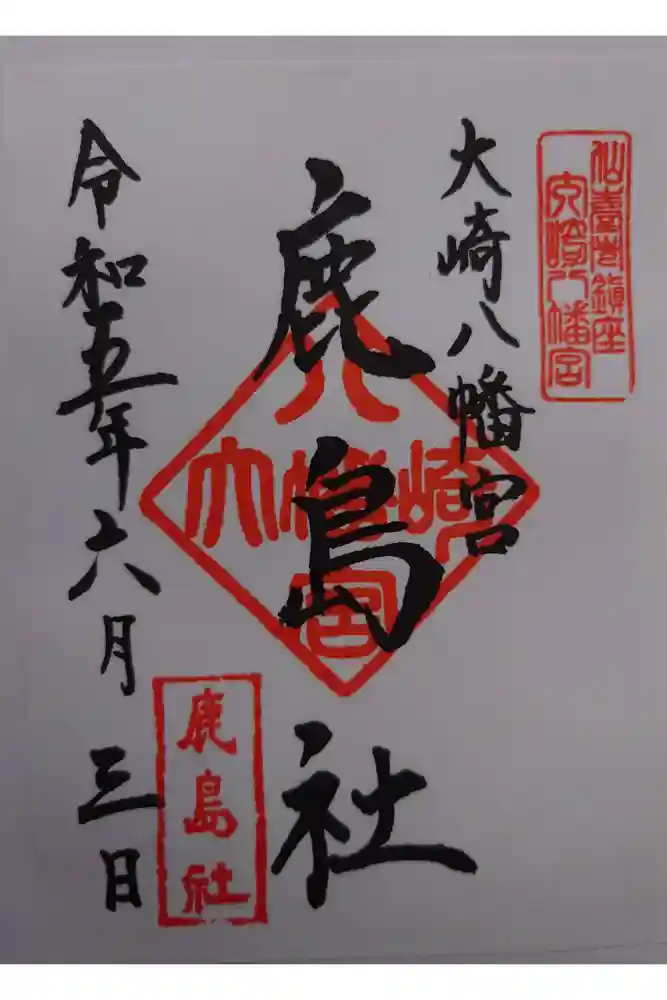 仙臺總鎮座
大崎八幡宮
大崎八幡宮
鹿島社
八
大幡崎
宮
鹿島社
令和五年六月三日